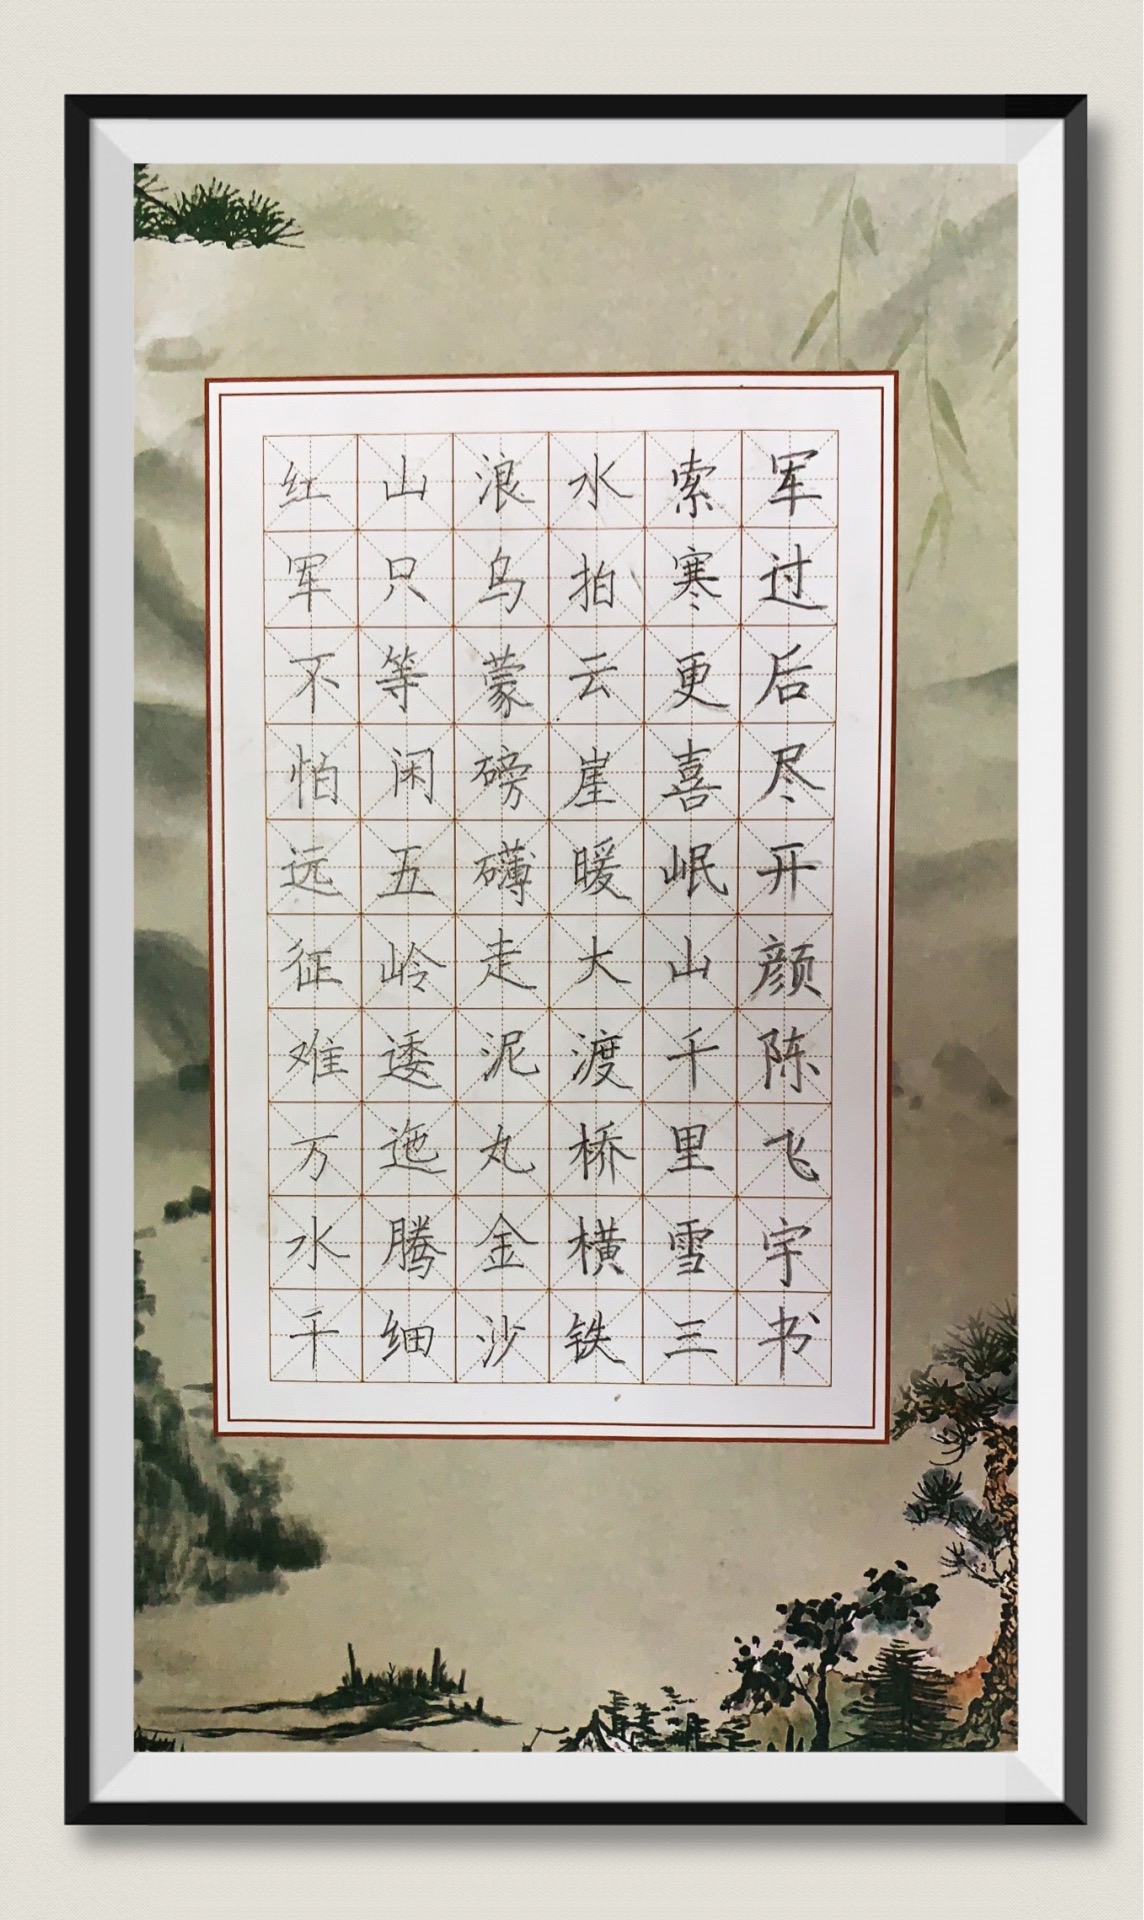 红军不怕远征难万水千
山只等闲五岭逶迤腾细
浪乌蒙磅礴走泥丸金沙
水拍云崖暖大渡桥横铁
索寒更喜岷山千里雪三
军过后尽开颜陈飞宇书